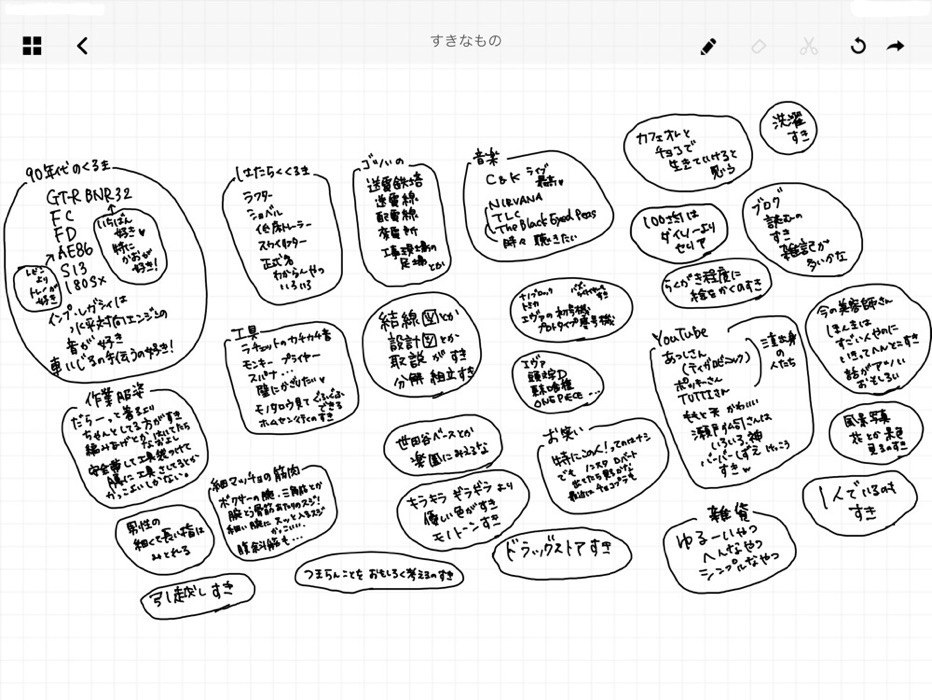 すきなもの
90年代のくるま
GT-R BNR32
FC
FD
AE86
S13
180SX
いちばん
好き♥
特に
かおが
好き!
レビン
より
トレノが
好き
インプ・レガシィは
水平対向エンジンの
音が好き
車いじるの手伝うの好き!
はたらくくるま
ラフター
ショベル
低床トレーラー
スカイマスター
正式名
わからんやつ
いろいろ
ゴツいの
送電鉄塔
送電線
配電線
変電所
工事現場の
足場とか
音楽
C&K ライブ
最高♥
NIRVANA
TLC
The Black Eyed Peas
時々 聴きたい
カフェオレと
チョコで
生きていけると
思う
洗濯
すき
100均は
ダイソーより
セリア
ブログ
読むの
すき
雑記が
多いかな
らくがき程度に
絵をかくのすき
工具
ラチェットのカチカチ音
モンキー プライヤー
スパナ…
壁にかざりたい♥
モノタロウ見てぐふぐふ
できる
ホムセン行くのすき
結線図とか
設計図とか
取説 がすき
分解 組立すき
ナノブロック
トミカ
エヴァの初号機
プロトタイプ零号機
エヴァ
頭文字D
東京喰種
ONE PIECE…
YouTube
あっしさん
ポッキーさん
TUTTIさん
ももと天 かわいい
瀬戸弘司さんは
いろいろ神
バーバーしずえ けっこう
すきw
三重出身
の
人たち
今の美容師さん
ほんまは
すごい人やのに
いきってへんとこすき
話がアツい
おもしろい
作業服姿
だらーっと着るより
ちゃんとしてる方がすき
編みあげとか はいてたら
なおよし
安全帯して工具袋つけて
腰に工具さしてるとか
かっこよいしかない。
細マッチョの筋肉
ボクサーの腕・三角筋とか
腕とう骨筋あたりのスジ!
細い腕にスッと入るスジ
かっこいい…
腹斜筋も…
男性の
細くて長い指は
みとれる
引っ越しすき
世田谷ベースとか
楽園にみえるな
キラキラ ギラギラ より
優しい色がすき
モノトーンすき
お笑い
特にこの人!ってのはナシ
でも ノンスタ ロバート
出てたら見るかな
最近はチョコプラも
つまらんことを おもしろく考えるのすき
ドラッグストアすき
雑貨
ゆるーいやつ
へんなやつ
シンプルなやつ
風景写真
花とか 景色
見るのすき
1人でいるのも
すき